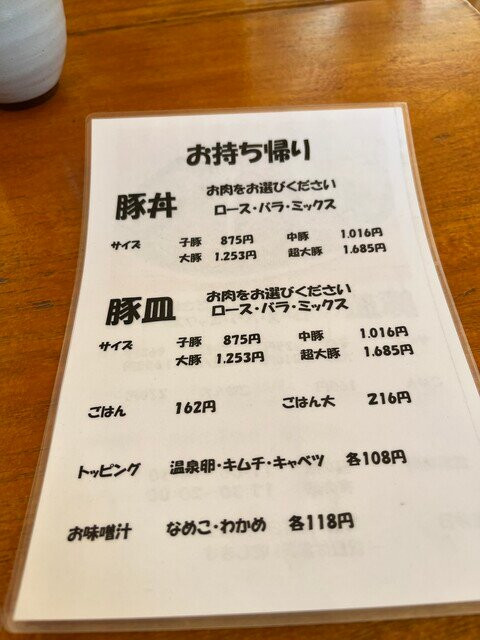 お持ち帰り
豚丼 お肉をお選びください
ロース・バラ・ミックス
サイズ 子豚 875円 中豚 1.016円
大豚 1.253円 超大豚 1.685円
豚皿 お肉をお選びください
ロース・バラ・ミックス
サイズ 子豚 875円 中豚 1.016円
大豚 1.253円 超大豚 1.685円
ごはん 162円 ごはん大 216円
トッピング 温泉卵・キムチ・キャベツ 各108円
お味噌汁 なめこ・わかめ 各118円